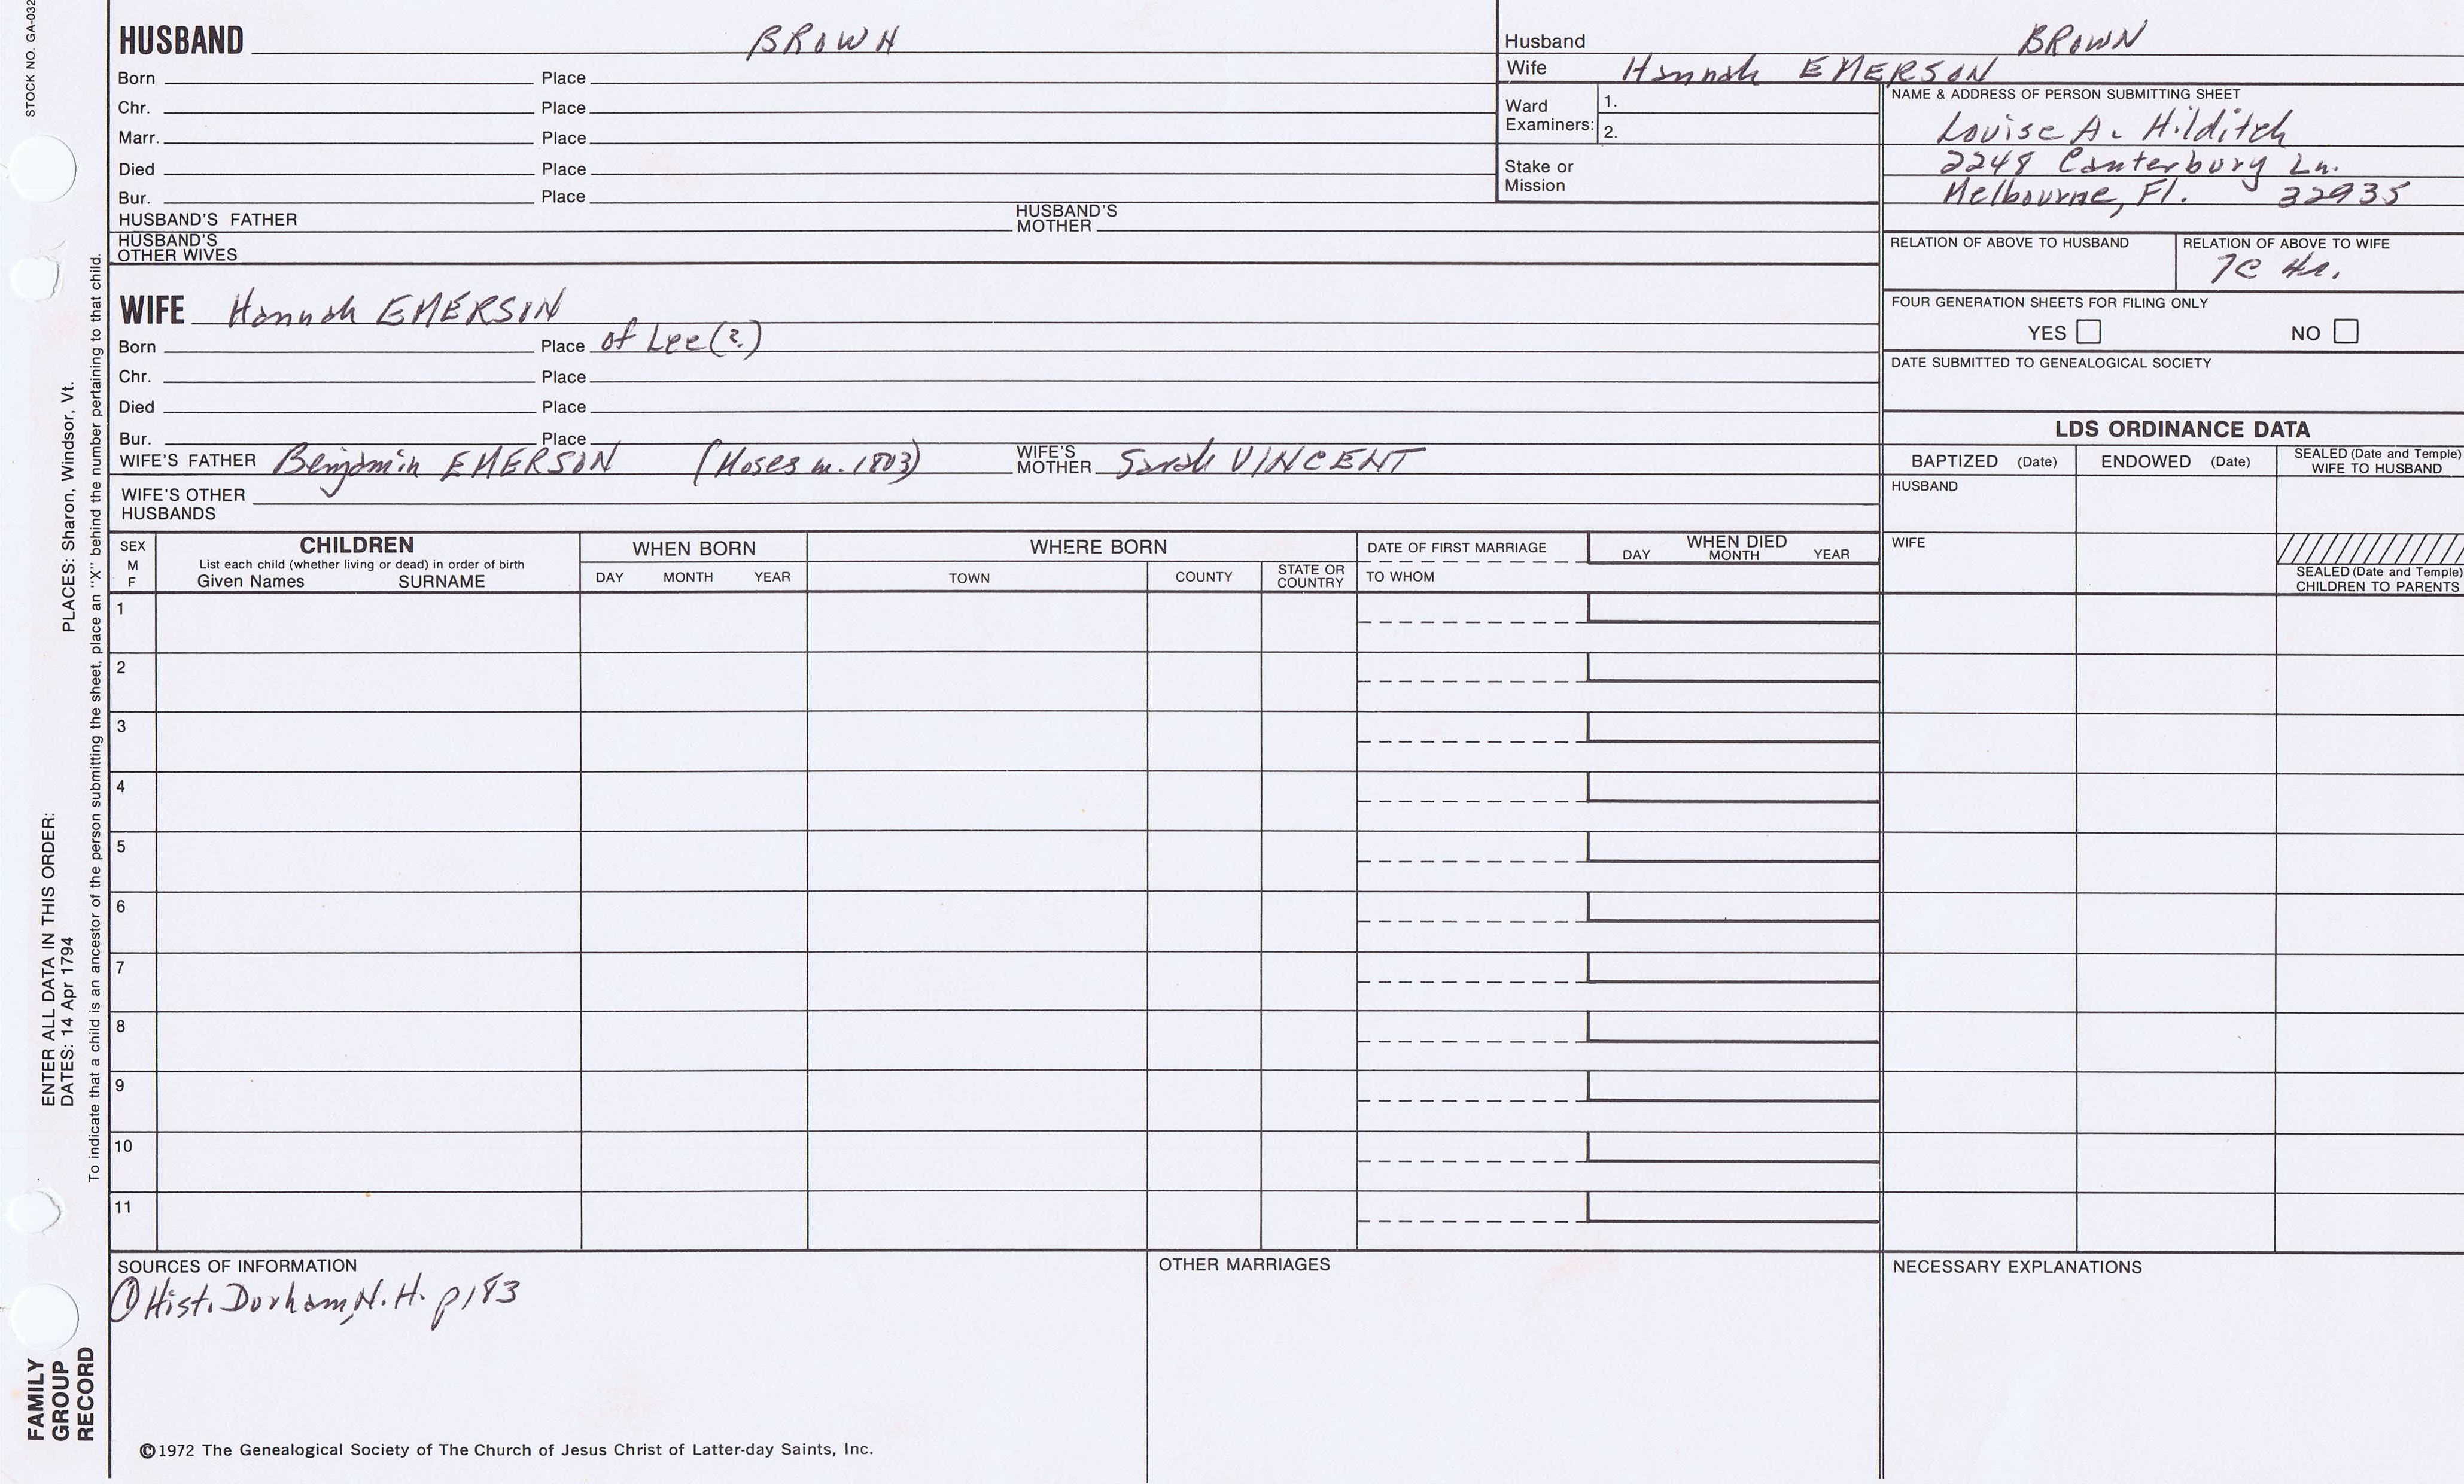 STOCK NO. GA-032
HUSBAND BROWN
Born Place
Chr. Place
Marr. Place
Died Place
Bur. Place
HUSBAND'S FATHER HUSBAND'S MOTHER
HUSBAND'S OTHER WIVES
Husband BROWN
Wife Hannah EMERSON
Ward Examiners: 1.
2.
Stake or Mission
NAME & ADDRESS OF PERSON SUBMITTING SHEET
Louise A. Hilditch
2248 Canterbury Ln.
Melbourne, Fl. 32935
RELATION OF ABOVE TO HUSBAND
RELATION OF ABOVE TO WIFE
7C 4r.
FOUR GENERATION SHEETS FOR FILING ONLY
YES NO
DATE SUBMITTED TO GENEALOGICAL SOCIETY
WIFE Hannah EMERSON
Born Place of Lee (?)
Chr. Place
Died Place
Bur. Place
WIFE'S FATHER Benjamin EMERSON (Moses m. 1803) WIFE'S MOTHER Sarah VINCENT
WIFE'S OTHER HUSBANDS
LDS ORDINANCE DATA
BAPTIZED (Date) ENDOWED (Date) SEALED (Date and Temple) WIFE TO HUSBAND
HUSBAND
WIFE
SEALED (Date and Temple) CHILDREN TO PARENTS
SEX M F
CHILDREN
List each child (whether living or dead) in order of birth
Given Names SURNAME
WHEN BORN
DAY MONTH YEAR
WHERE BORN
TOWN COUNTY STATE OR COUNTRY
DATE OF FIRST MARRIAGE
TO WHOM
WHEN DIED
DAY MONTH YEAR
1
2
3
4
5
6
7
8
9
10
11
SOURCES OF INFORMATION
① Hist. Durham, N.H. p183
OTHER MARRIAGES
NECESSARY EXPLANATIONS
©1972 The Genealogical Society of The Church of Jesus Christ of Latter-day Saints, Inc.
FAMILY
GROUP
RECORD
ENTER ALL DATA IN THIS ORDER:
DATES: 14 Apr 1794 PLACES: Sharon, Windsor, Vt.
To indicate that a child is an ancestor of the person submitting the sheet, place an "X" behind the number pertaining to that child.